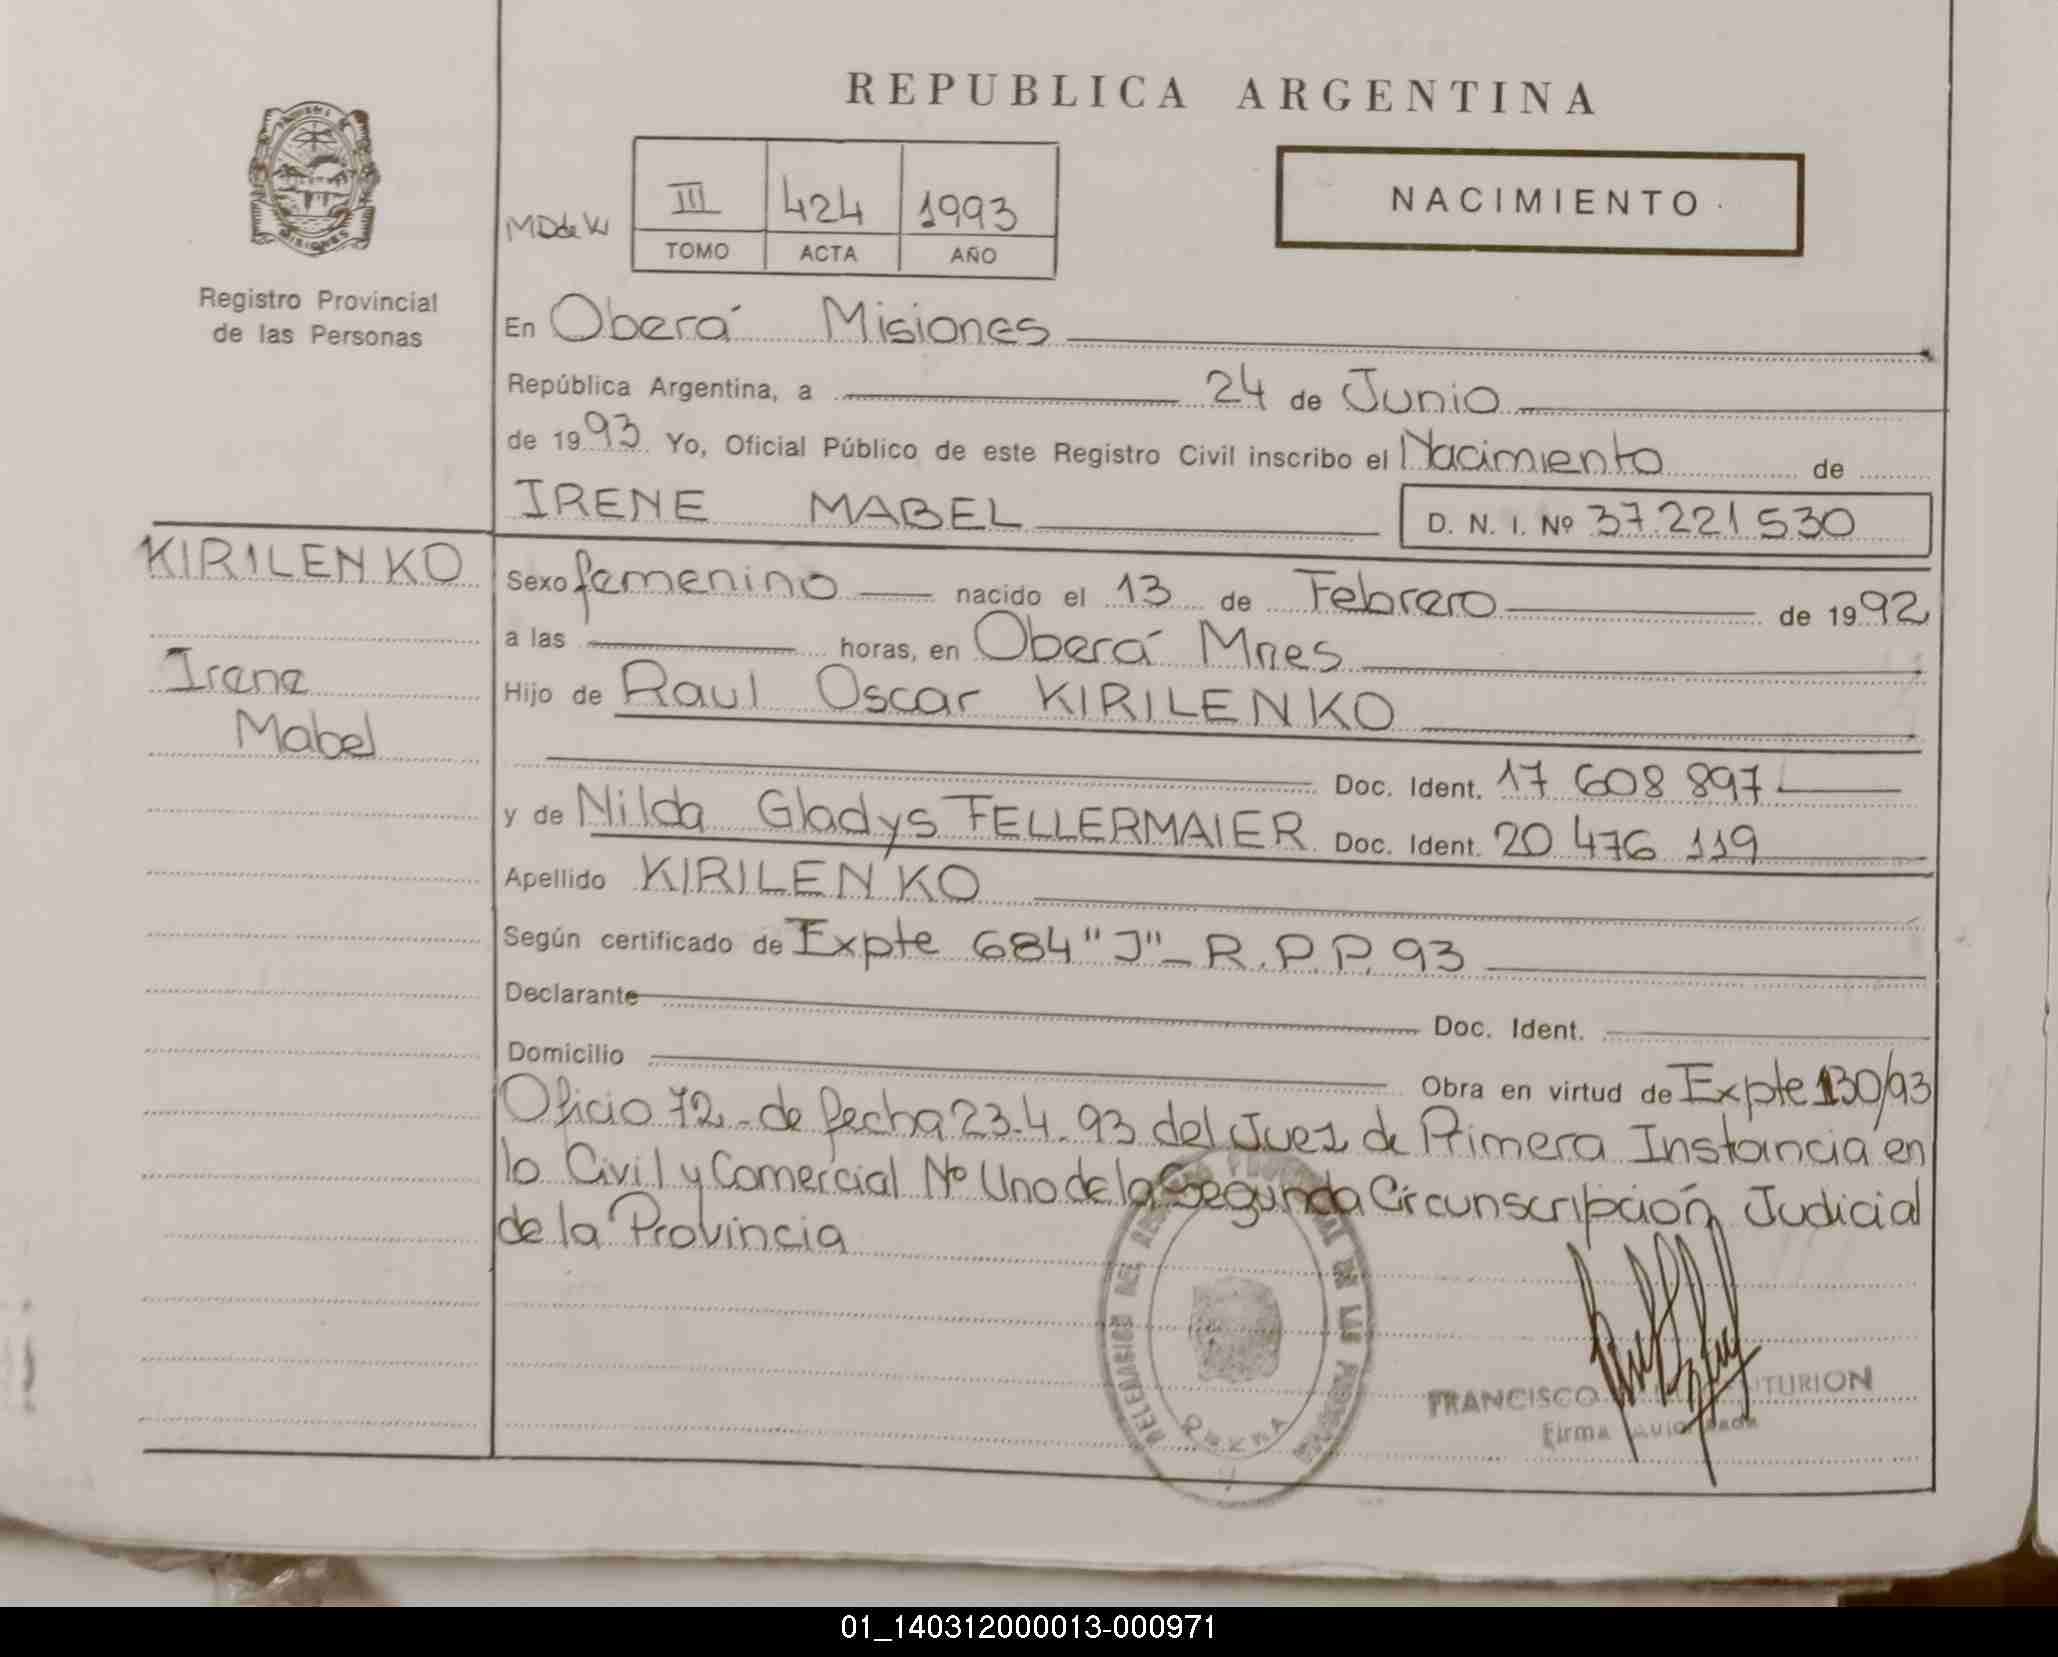 REPUBLICA ARGENTINA
NACIMIENTO
MDdeK
III 424 1993
TOMO ACTA AÑO
MISIONES
Registro Provincial
de las Personas
En Oberá Misiones
República Argentina, a 24 de Junio
de 1993 Yo, Oficial Público de este Registro Civil inscribo el Nacimiento de
IRENE MABEL D. N. I. Nº 37.221530
KIRILENKO
Irene
Mabel
Sexo femenino nacido el 13 de Febrero de 1992
a las horas, en Oberá Mnes
Hijo de Raul Oscar KIRILENKO
Doc. Ident. 17 608 897
y de Nilda Gladys FELLERMAIER Doc. Ident. 20 476 119
Apellido KIRILENKO
Según certificado de Expte 684 "J"_ R.P.P. 93
Declarante Doc. Ident.
Domicilio Obra en virtud de Expte 130/93
Oficio 72 - de fecha 23.4.93 del Juez de Primera Instancia en
lo Civil y Comercial Nº Uno de la Segunda Circunscripción Judicial
de la Provincia
DEL LAS
FRANCISCO
Firma
01_140312000013-000971